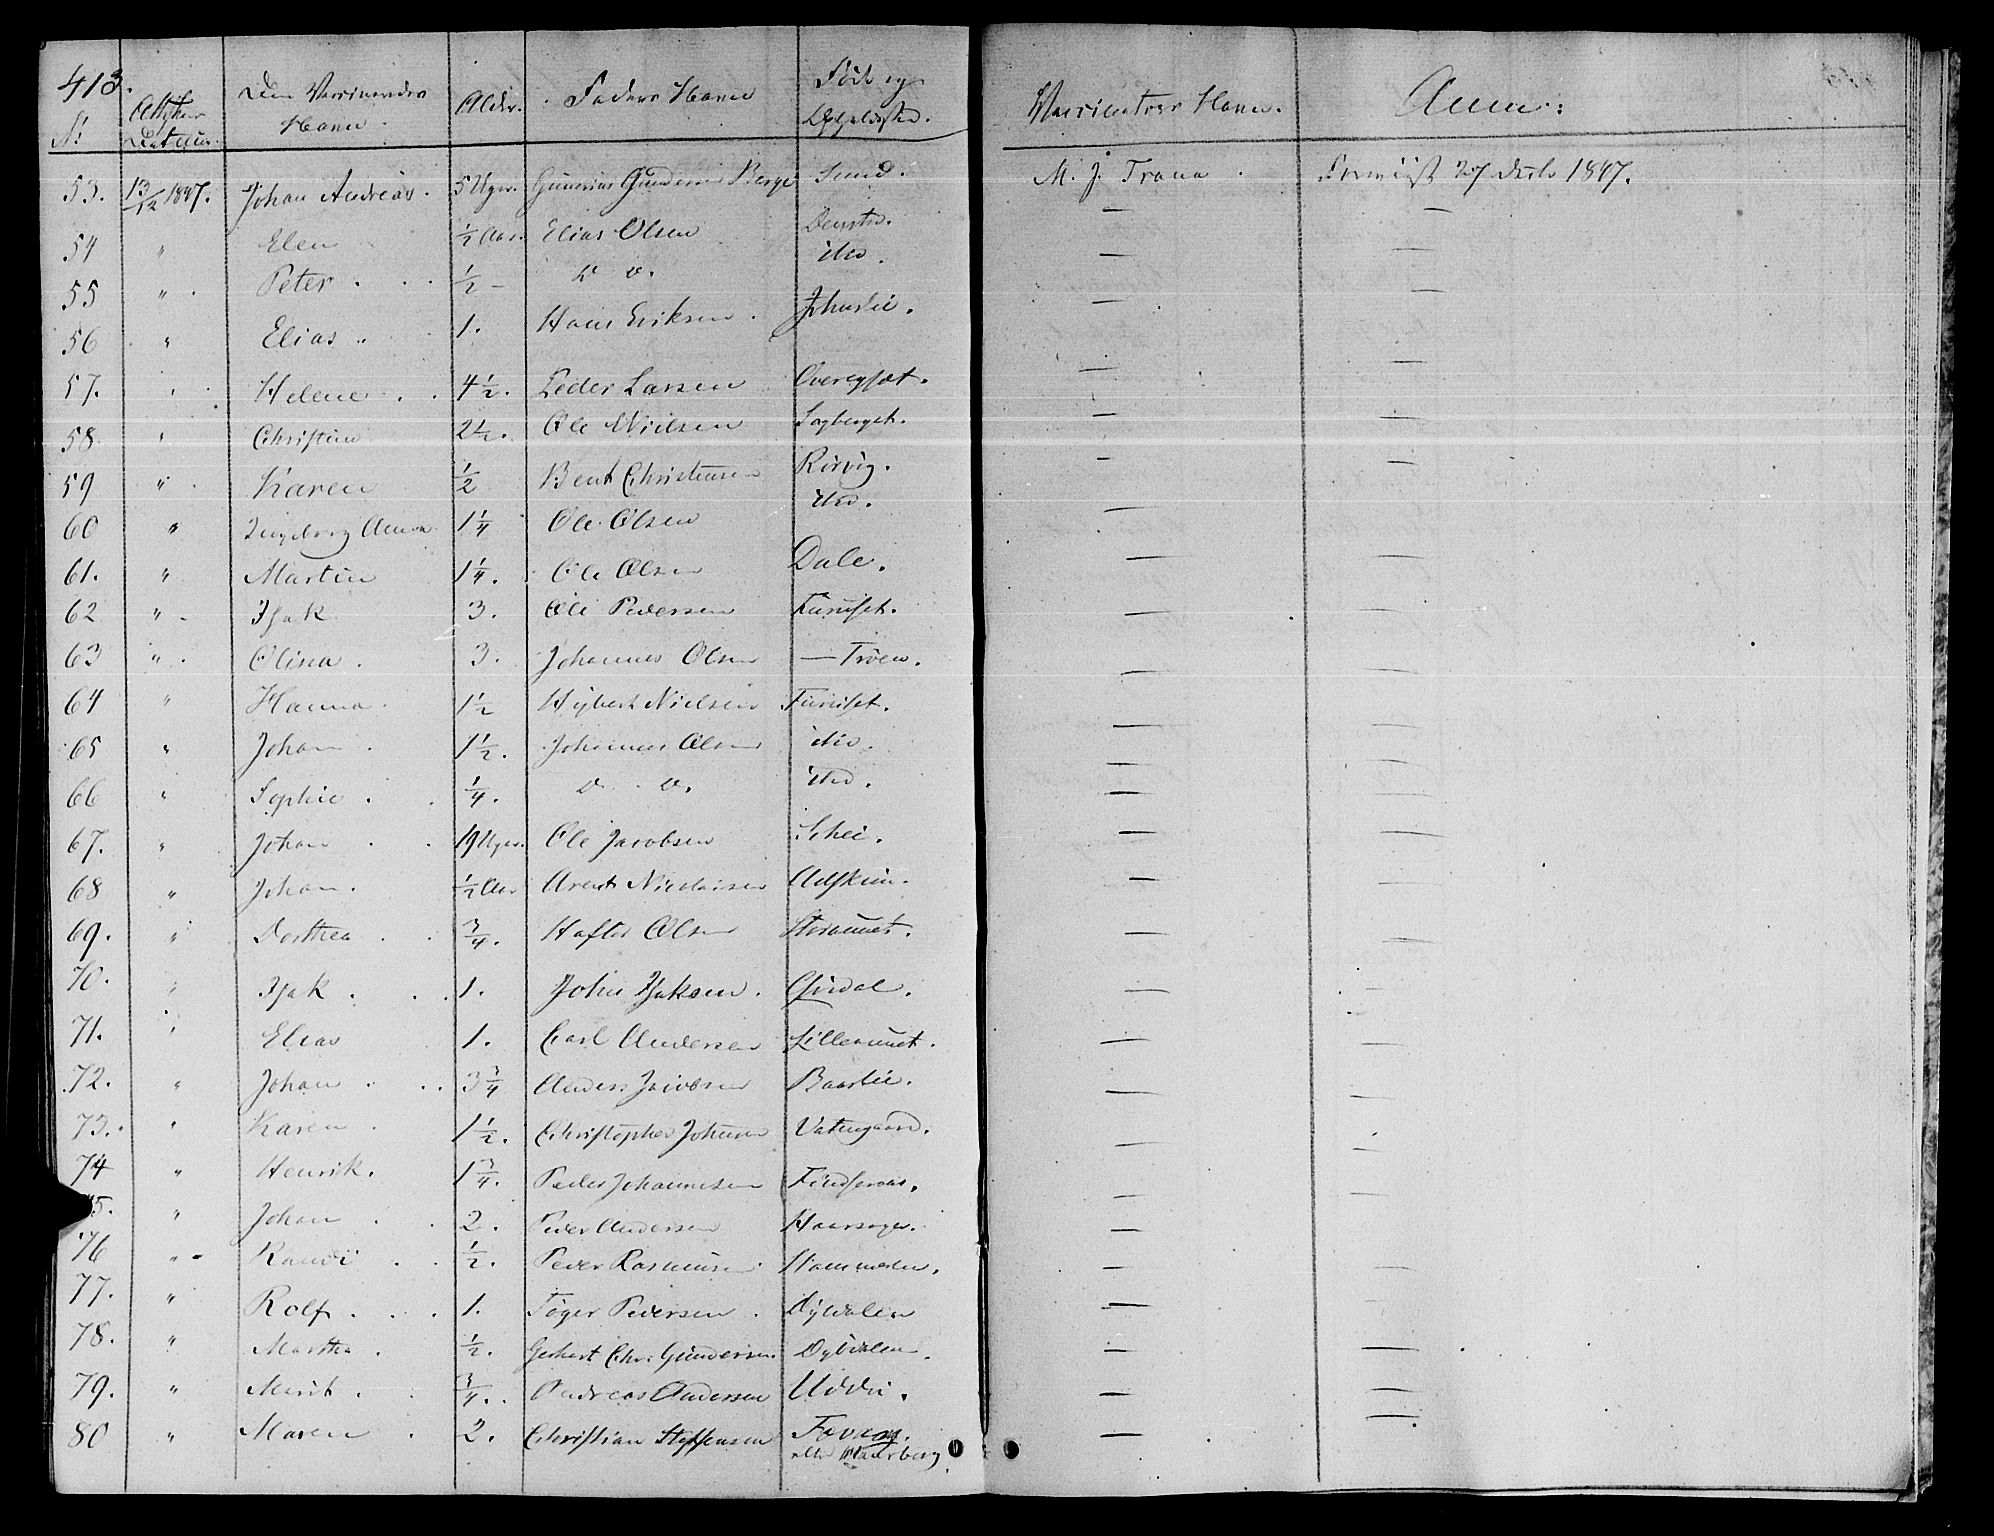 413.
N: Datum. Den Vaccineredes Navn Alder. Faders Navn Føde og Opholdssted. Vaccinators Navn. Anm:
53. 13/12 1847. Johan Andreas. 5 Uger. Gunerius Gundersen Berge Sund. M. J. Trana Forevist 27 Decb 1847.
54 " Elen ½ Aar. Elias Olsen — —
55 " Peter ½ — D o. ibid. — —
56 " Elias 1. Hans Eriksen — —
57. " Helene 4½. Peder Larsen — —
58 " Christine 2½. Ole Nielsen Sagberget. — —
59 " Karen ½ Bent Christensen Rörvig. — —
60 " Ingeborg Anna 1¼ Ole Olsen ibid. — —
61. " Martin 1¼. Ole Olsen Dale. — —
62 " Isak 3. Ole Pedersen Furuset. — —
63 " Olina. 3. Johannes Olsen — Tröen. — —
64 " Hanna. 1½ Nielsen Furuset. — —
65 " Johan. 1½. Johannes Olsen ibid. — —
66 " Sophie. ¼. D o. ibid. — —
67. " Johan 19 Uger. Ole Jacobsen Schei. — —
68 " Johan. ½ Aar Arent Nicolaisen — —
69. " Dorthea ¾. Hafter Olsen — —
70. " Isak. 1. John Isaksen. — —
71. " Elias 1. Carl Andersen — —
72. " Johan 3¾ Anders Jacobsen Baarlie. — —
73. " Karen 1½. Christopher Johnsen — —
74 " Henrik. 1¾. Peder Johannesen — —
75. " Johan 2. Peder Andersen — —
76 " Randi ½. Peder Rasmusen Hammeren. — —
77. " Rolf. 1. Töger Pedersen. Dybdalen — —
78. " Martha. ½. Gerhart Chr: Gundersen Dybdalen. — —
79. " Marit. ¾. Andreas Andersen — —
80 " Maren 2. Christian Steffensen — —